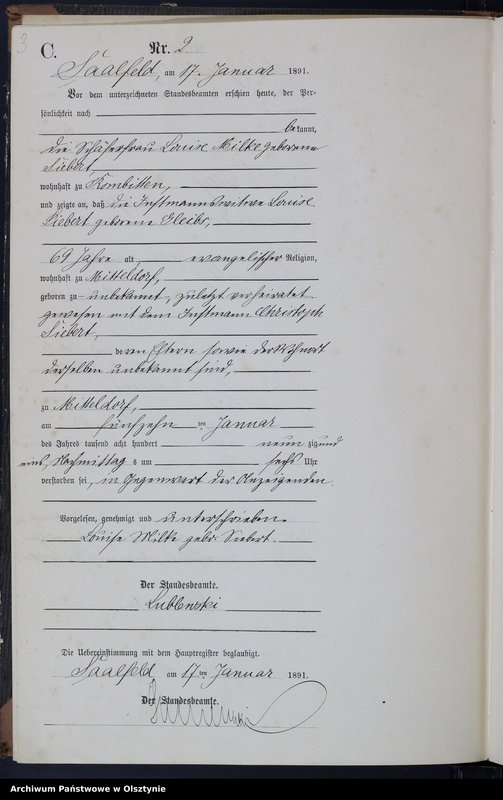 3
C.
Nr. 2
Saalfeld, am 17. Januar 1891.
Vor dem unterzeichneten Standesbeamten erschien heute, der Per-
sönlichkeit nach
bekannt,
die Schäferfrau Louise Milke geborene
Siebert,
wohnhaft zu Kombitten,
und zeigte an, daß die Instmannswitwe Louise
Siebert geborene
69 Jahre alt, evangelischer Religion,
wohnhaft zu Mitteldorf,
geboren zu unbekannt, zuletzt verheiratet
gewesen mit dem Instmann Christoph
Siebert,
deren Eltern sowie der Wohnort
derselben unbekannt sind,
zu Mitteldorf,
am fünfzehn ten Januar
des Jahres tausend acht hundert neun zig und
eins, Nachmittags um sechs Uhr
verstorben sei, in Gegenwart der Anzeigenden.
Vorgelesen, genehmigt und unterschrieben.
Louise Milke gebr. Siebert.
Der Standesbeamte.
Lublenski
Die Uebereinstimmung mit dem Hauptregister beglaubigt.
Saalfeld, am 17 ten Januar 1891.
Der Standesbeamte.
Archiwum Państwowe w Olsztynie